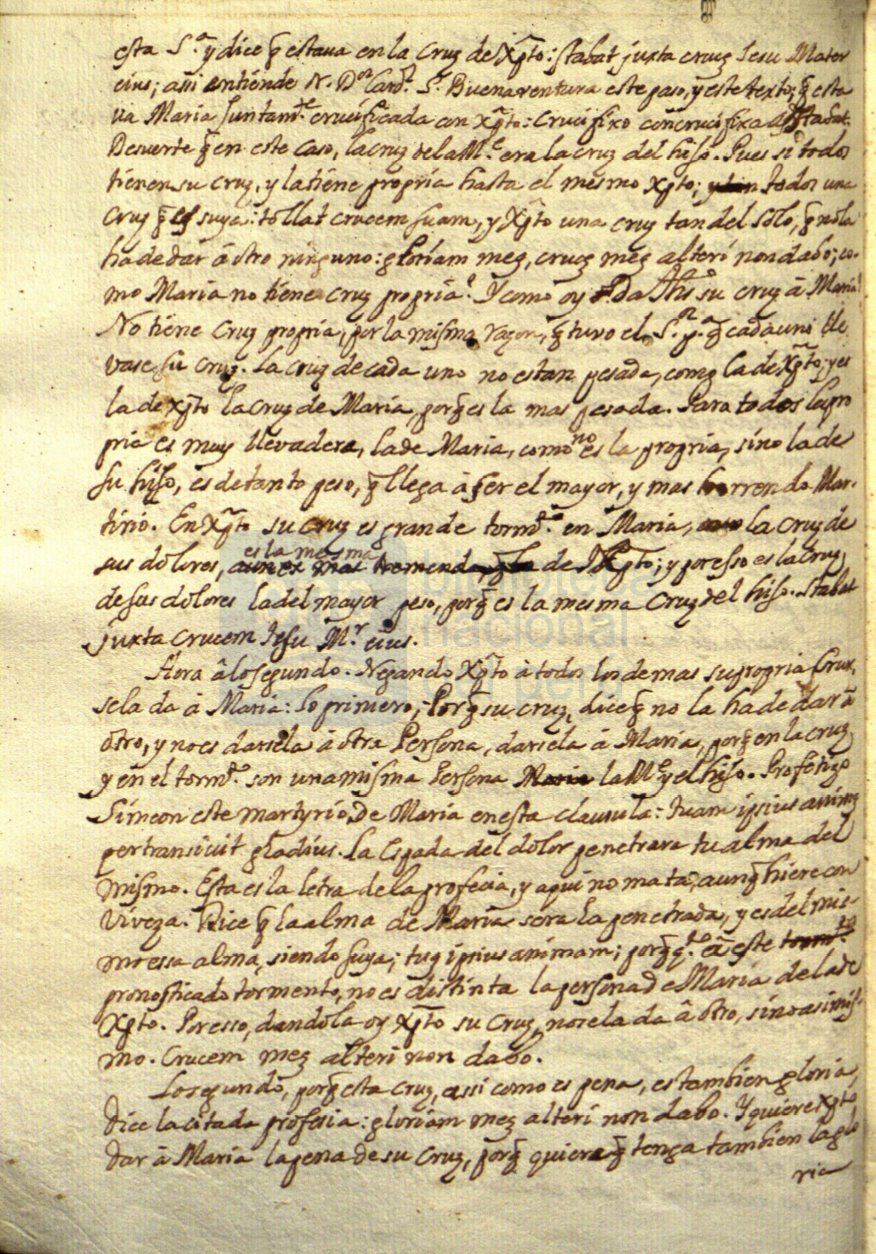 esta S.ª y dice q̃ estaua en la Cruz de Xp̃to: stabat juxta cruz Iesu Mater
eius; assi entiende N. D.ᵒʳ Card.ˡ S. Buenaventura este paso, y este texto; q̃ esta
ua Maria juntam.ᵗᵉ crucificada con Xp̃to: Crucifixo concrucifixa astabat.
Desuerte q̃ en este caso, la cruz de la M.ᵉ era la cruz del hijo. Pues si todos
tienen su cruz, y la tiene propria hasta el mesmo Xp̃to; todos una
Cruz q̃ es suya: tollat crucem suam, y Xp̃to una cruz tan del solo, q̃ no la
ha de dar â otro ninguno: gloriam meã, cruce meã alteri non dabo; co-
mo Maria no tiene cruz propria? Y como oy da su cruz â Maria?
No tiene Cruz propria, por la misma razon, q̃ tuvo el S.ᵒʳ p.ª q̃ cada uno lle
vase su cruz. La cruz de cada uno no es tan pesada, como la de Xp̃to, y es
la de Xp̃to la cruz de Maria, porq̃ es la mas pesada. Para todos la pro
pria es muy llevadera, la de Maria, como no es la propria, sino la de
su hijo, es de tanto peso, q̃ llega â ser el mayor, y mas horrendo Mar-
tirio. En Xp̃to su cruz es grande torm.ᵗᵒ en Maria, la cruz de
sus dolores, es la mesma de Xp̃to; y por esso es la Cruz
de sus dolores la del mayor peso, porq̃ es la mesma Cruz del hijo. Stabat
juxta crucem Iesu M.ʳ eius.
Aora â lo segundo. Negando Xp̃to â todos los demas su propria Cruz,
se la da â Maria: lo primero, Porq̃ su cruz, dice q̃ no la ha de dar â
otro, y no es darsela â otra Persona, darsela â Maria, porq̃ en la cruz,
y en el torm.ᵗᵒ son una misma Persona la M.ᵉ y el hijo. Profetizo
Simeon este martyrio de Maria en esta clausula: Tuam ipsius animã
pertransivit gladius. La Espada del dolor penetrara tu alma del
mismo. Esta es la letra de la profecia, y aqui no mata, aunq̃ hiere con
viveza. Dice q̃ la alma de Maria sera la penetrada, y es del mis-
mo essa alma, siendo suya; tuã ipsius animam; porq̃ en este
pronosticado tormento, no es distinta la persona de Maria de la de
Xp̃to. Por esso, dandola oy Xp̃to su Cruz, no se la da â otro, sino a si mis-
mo. Crucem meã alteri non dabo.
Lo segundo, porq̃ esta cruz, assi como es pena, es tambien gloria,
dice la citada profesia: gloriam meã alteri non dabo. Y quiere Xp̃to
dar â Maria la pena de su Cruz, porq̃ quiere q̃ tenga tambien la glo
ria
biblioteca
nacional
del perú